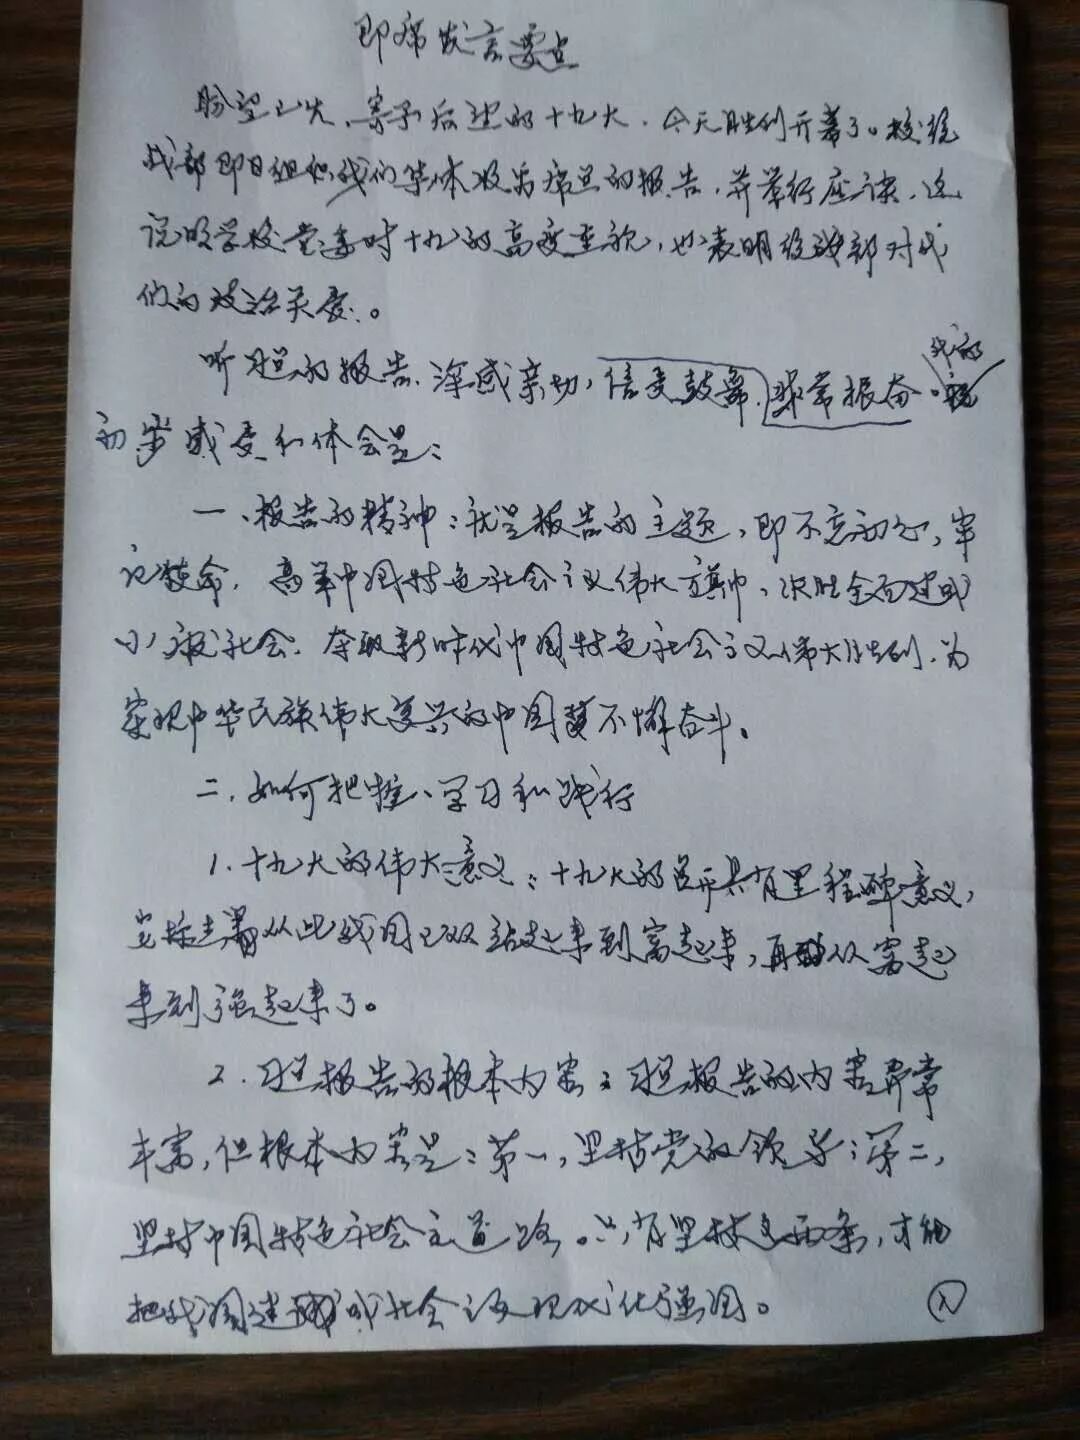 即席发言要点
盼望已久、亲手后建的十九大,今天胜利开幕了。校统
战部即日组织我们集体收看席总的报告,并举行座谈,这
说明学校党委对十九的高度重视,也表明统战部对我
们的政治关爱。
我的
听习总的报告,深感亲切,倍受鼓舞,非常振奋。
初步感受和体会是:
一、报告的精神:就是报告的主题,即不忘初心,牢
记使命,高举中国特色社会主义伟大旗帜,决胜全面建成
小康社会,夺取新时代中国特色社会主义伟大胜利,为
实现中华民族伟大复兴的中国梦不懈奋斗。
二、如何把握、学习和践行
1.十九大的伟大意义:十九大的召开具有里程碑意义,
它标志着从此我国已从站起来到富起来,再从富起
来到强起来了。
2.习总报告的根本内容:习总报告的内容异常
丰富,但根本内容是:第一,坚持党的领导;第二,
坚持中国特色社会主义道路。只有坚持这两条,才能
把我国建成社会主义现代化强国。